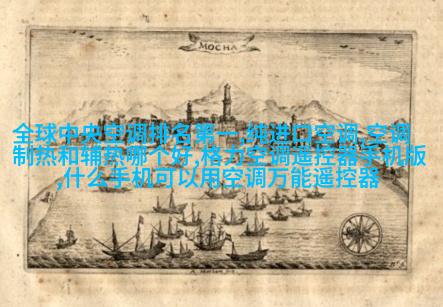 MOCHA
全球中央空调排名第一,纯进口空调,空调
制热和辅热哪个好,格力空调遥控器手机版
,什么手机可以用空调万能遥控器